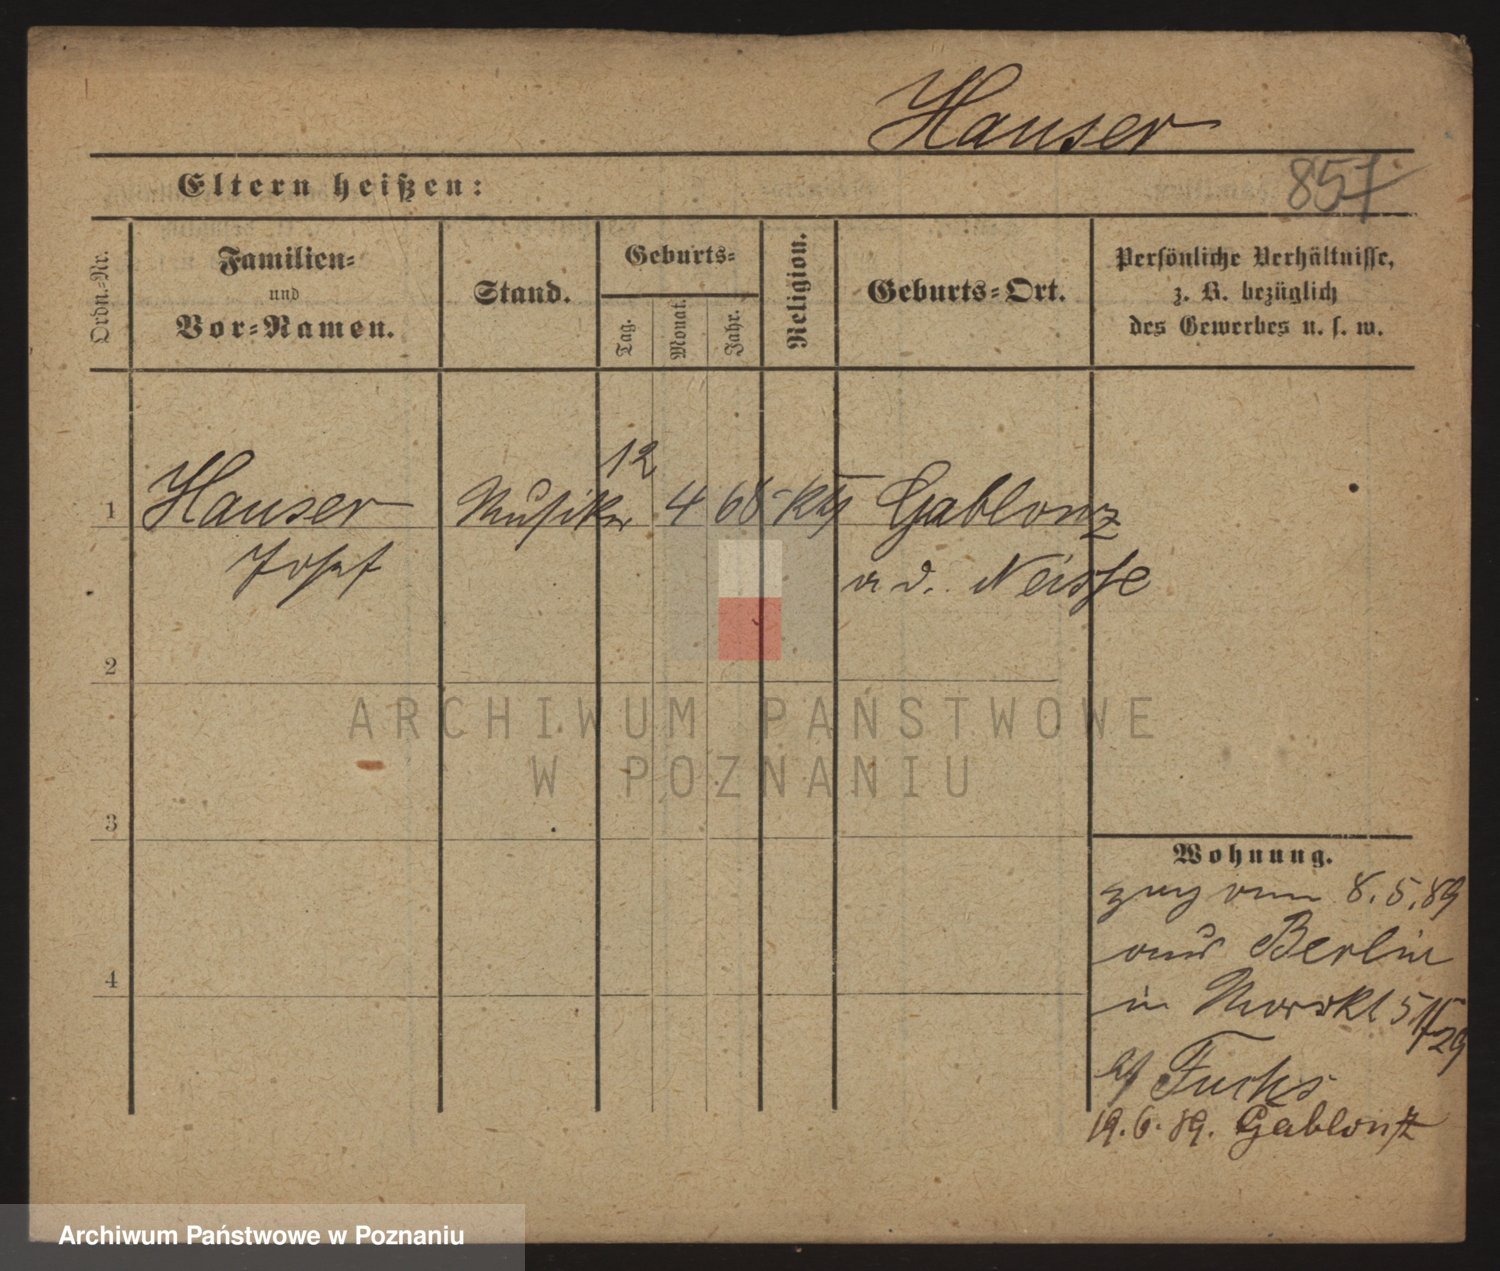 Hauser
Eltern heißen:
857
Ordn.-Nr.
Familien-
und
Vor-Namen.
Stand.
Geburts-
Tag.
Monat.
Jahr.
Religion.
Geburts-Ort.
Persönliche Verhältnisse,
z. B. bezüglich
des Gewerbes u. s. w.
12
1 Hauser Musiker 4 68 kth Gablonz
Josef a d. Neisse
2
ARCHIWUM PAŃSTWOWE
W POZNANIU
3
Wohnung.
zug vom 8.5.89
aus Berlin
4
in
bei Fuchs
19.6.89. Gablontz
Archiwum Państwowe w Poznaniu